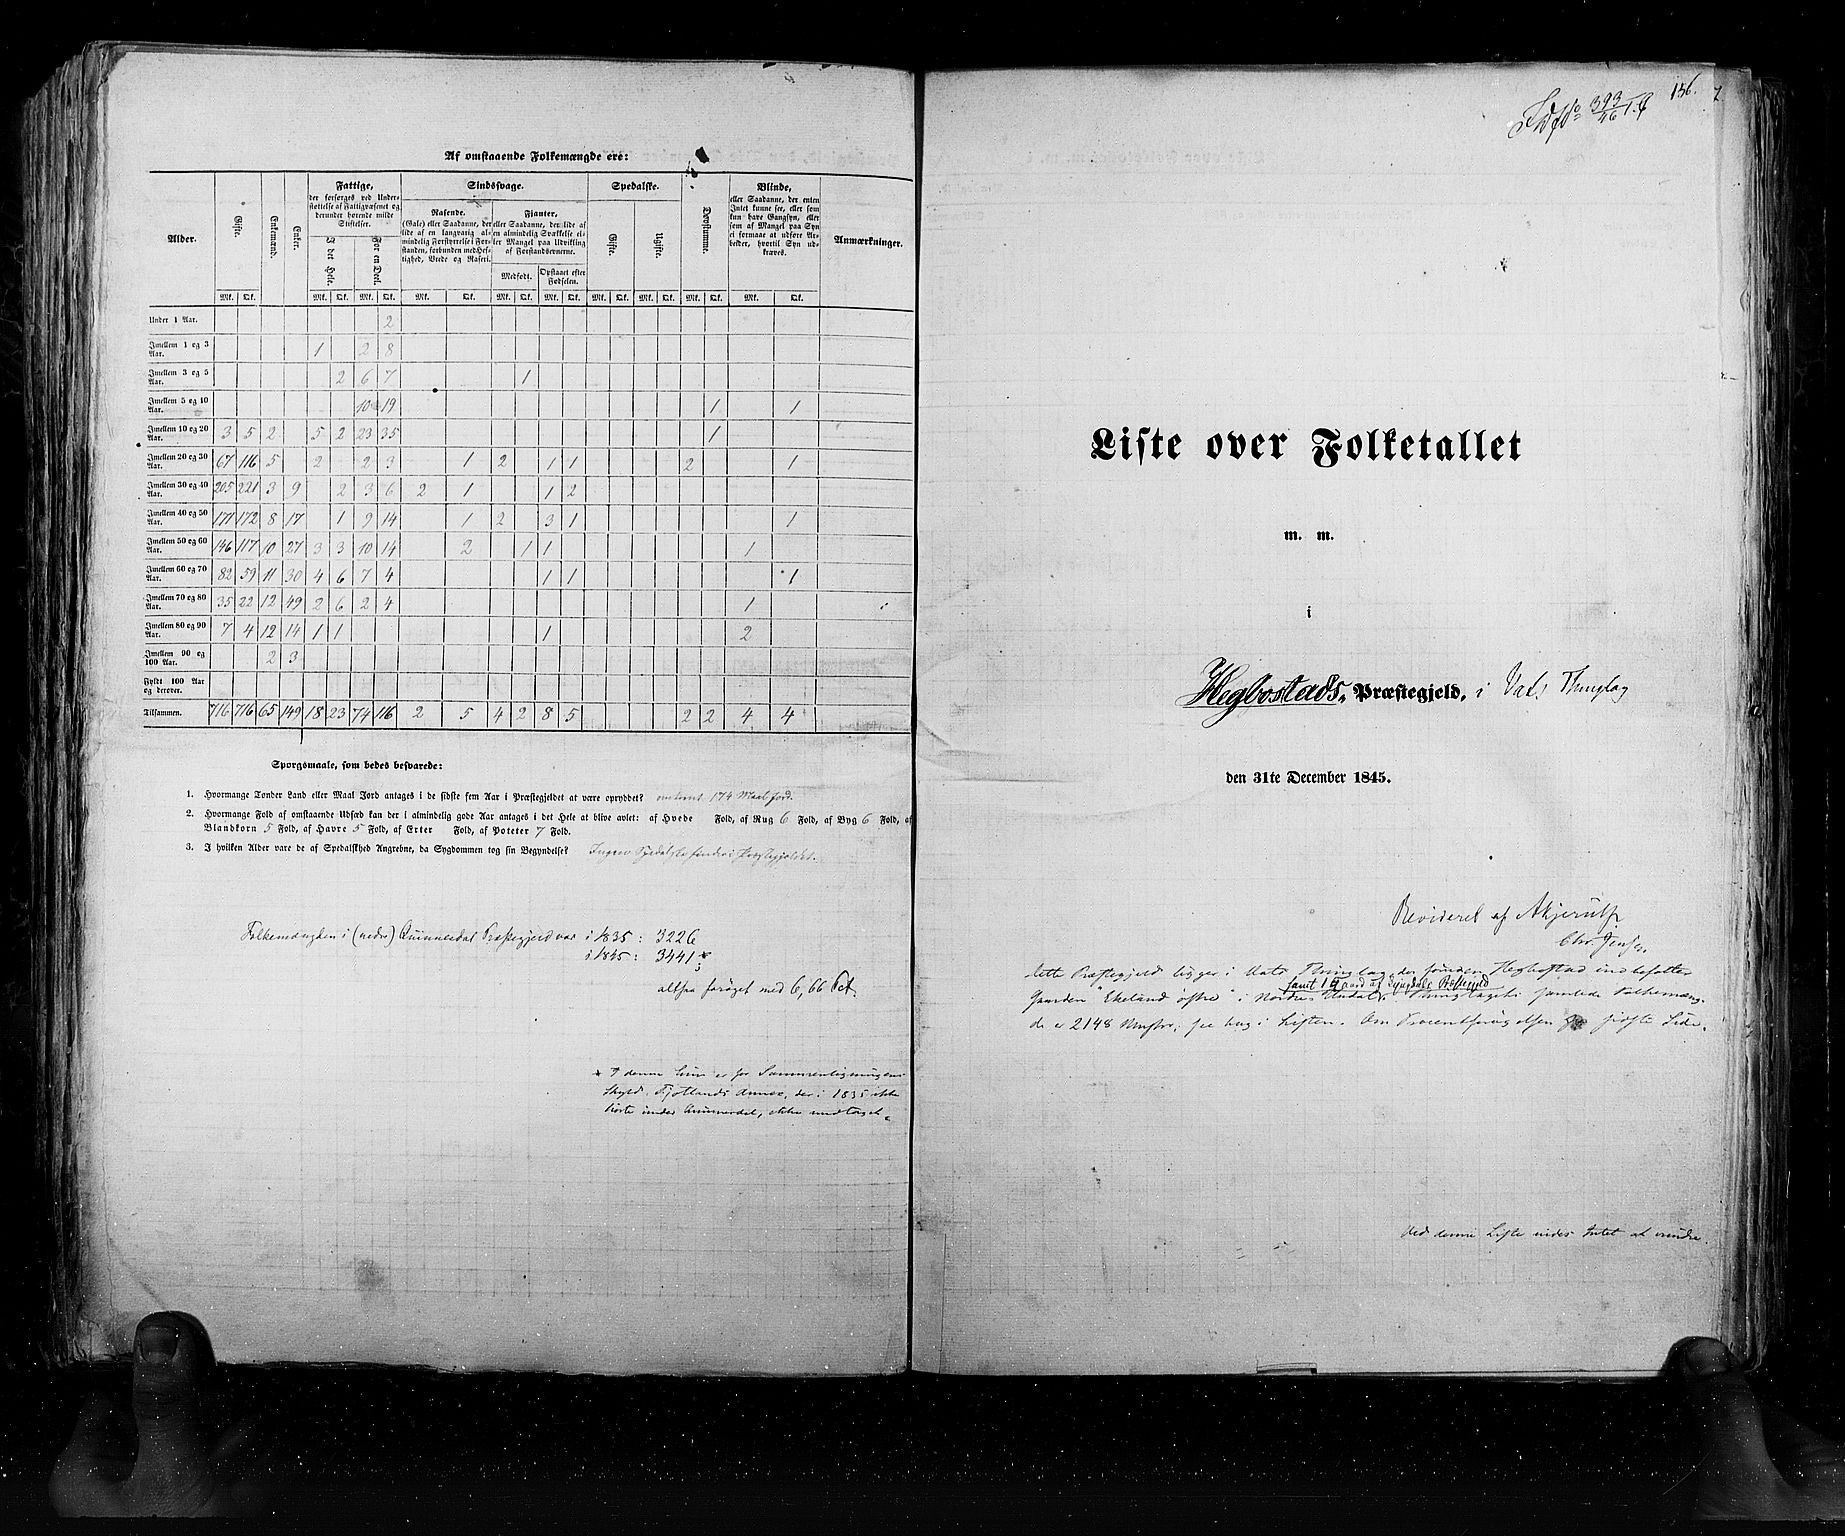 Af omstaaende Folkemængde ere:
Alder. Gifte. Enkemænd. Enker. Fattige, der forsørges ved Understøttelse af Fattigvæsenet og derunder hørende milde Stiftelser. Sindssvage. Spedalske. Døvstumme. Blinde, eller Saadanne, der enten Intet kunne see, eller som kun have Gangsyn, eller som af Mangel paa Syn ei formaae at udføre Arbeider, hvortil Syn udkræves. Anmærkninger.
I det Hele. For en Deel. Rasende. (Gale) eller Saadanne, der lide af en langvarig almindelig Forstyrrelse i Forstanden, forbunden med Heftighed, Vrede og Raseri. Fjanter, eller Saadanne, der lide af en almindelig Svækkelse eller Mangel paa Udvikling af Forstandsevnerne. Gifte. Ugifte.
Medfødt. Opstaaet efter Fødselen.
Mk. Qk. Mk. Qk. Mk. Qk. Mk. Qk. Mk. Qk. Mk. Qk. Mk. Qk. Mk. Qk. Mk. Qk. Mk. Qk.
Under 1 Aar. 2
Imellem 1 og 3 Aar. 1 2 8
Imellem 3 og 5 Aar. 2 6 7 1
Imellem 5 og 10 Aar. 10 19 1 1
Imellem 10 og 20 Aar. 3 5 2 5 2 23 35 1
Imellem 20 og 30 Aar. 67 116 5 2 2 3 1 2 1 1 2 1
Imellem 30 og 40 Aar. 205 221 3 9 2 3 6 2 1 1 2
Imellem 40 og 50 Aar. 171 172 8 17 1 9 14 1 2 3 1 1
Imellem 50 og 60 Aar. 146 117 10 27 3 3 10 14 2 1 1 1
Imellem 60 og 70 Aar. 82 59 11 30 4 6 7 4 1 1 1
Imellem 70 og 80 Aar. 35 22 12 49 2 6 2 4 1
Imellem 80 og 90 Aar. 7 4 12 14 1 1 1 2
Imellem 90 og 100 Aar. 2 3
Fyldt 100 Aar og derover.
Tilsammen. 716 716 65 149 18 23 74 116 2 5 4 2 8 5 2 2 4 4
Spørgsmaale, som bedes besvarede:
1. Hvormange Tønder Land eller Maal Jord antages i de sidste fem Aar i Præstegjeldet at være opryddet? omtrent 174 Maal Jord.
2. Hvormange Fold af omstaaende Udsæd kan der i almindelig gode Aar antages i det Hele at blive avlet: af Hvede Fold, af Rug 6 Fold, af Byg 6 Fold, af
Blandkorn 5 Fold, af Havre 5 Fold, af Erter Fold, af Poteter 7 Fold.
3. I hvilken Alder vare de af Spedalskhed Angrebne, da Sygdommen tog sin Begyndelse? Ingen Spedalske findes i Præstegjeldet.
Folkemængden i (nedre) Quinnesdal Præstegjeld var i 1835: 3226
i 1845: 3441 *
altsaa forøget med 6,66 Pct.
* I denne Sum er for Sammenligningens
Skyld Fjotlands Annex, der i 1835 ikke
hørte under Quinnesdal, ikke medtaget.
156.
393/46
Liste over Folketallet
m. m.
i
Hegbostads Præstegjeld, i Vats Thinglag
den 31te December 1845.
Revideret af AKjerulf
Chr. Jensen
Dette Præstegjeld ligger i Vats Thinglag, der foruden Hegbostad indbefatter
samt 1 Gaard af Lyngdals Præstegjeld
Gaarden "Ekeland østre" i Nordre Undal. Thinglagets samlede Folkemæng-
de er 2148 Mnskr, see bag i Listen. Om Procentforøgelsen sidste Side.
Ved denne Liste vides Intet at erindre.